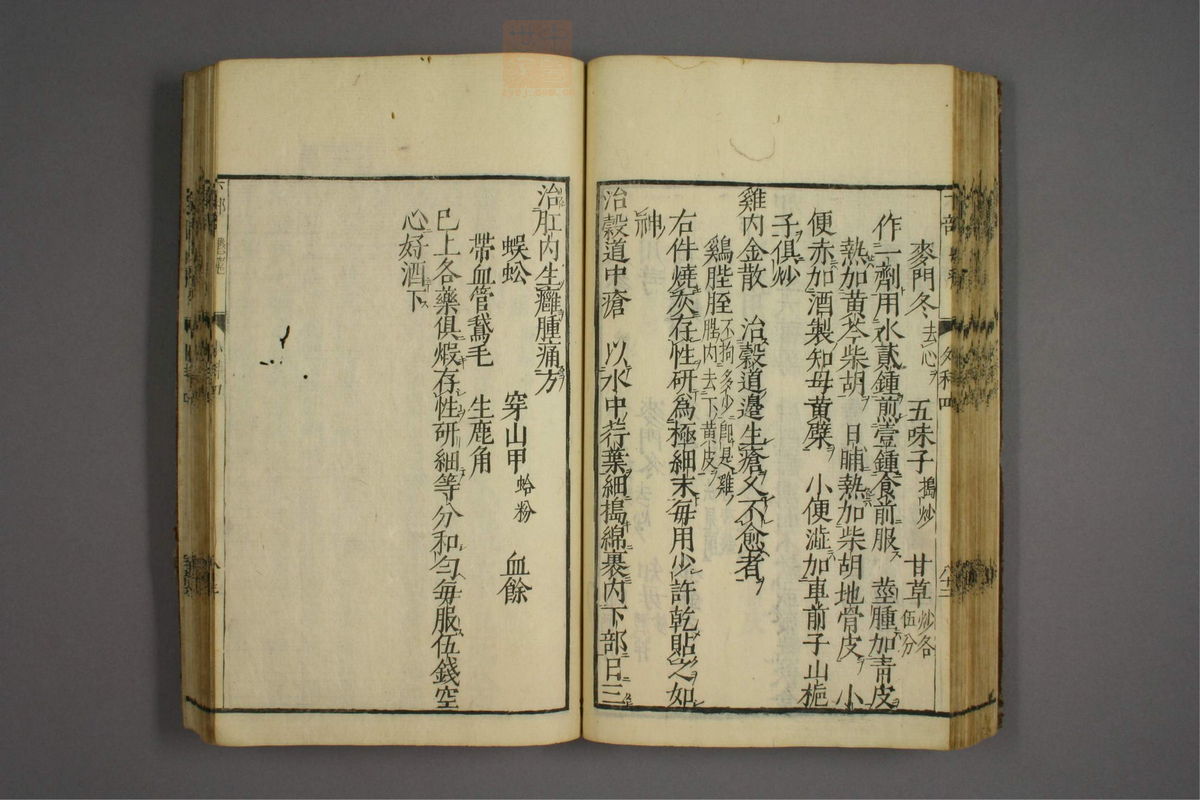 麥門冬去心 五味子搗炒 甘草炒各伍分
作一劑用水貳鍾煎壹鍾食前服 莖腫加青皮
熱加黃芩柴胡 日晡熱加柴胡地骨皮 小
便赤加酒製知母黃檗 小便澁加車前子山梔
子俱炒
雞內金散 治穀道邊生瘡久不愈者
鷄䏶胵不拘多少卽是雞
䏶內去下黃皮
右件燒灰存性研為極細末每用少許乾貼之如
神
治穀道中瘡 以水中荇葉細搗綿裹內下部日三
治肛內生癰腫痛方
蜈蚣 穿山甲蛤粉 血餘
帶血管鵞毛 生鹿角
巳上各藥俱煅存性研細等分和勻每服伍錢空
心好酒下